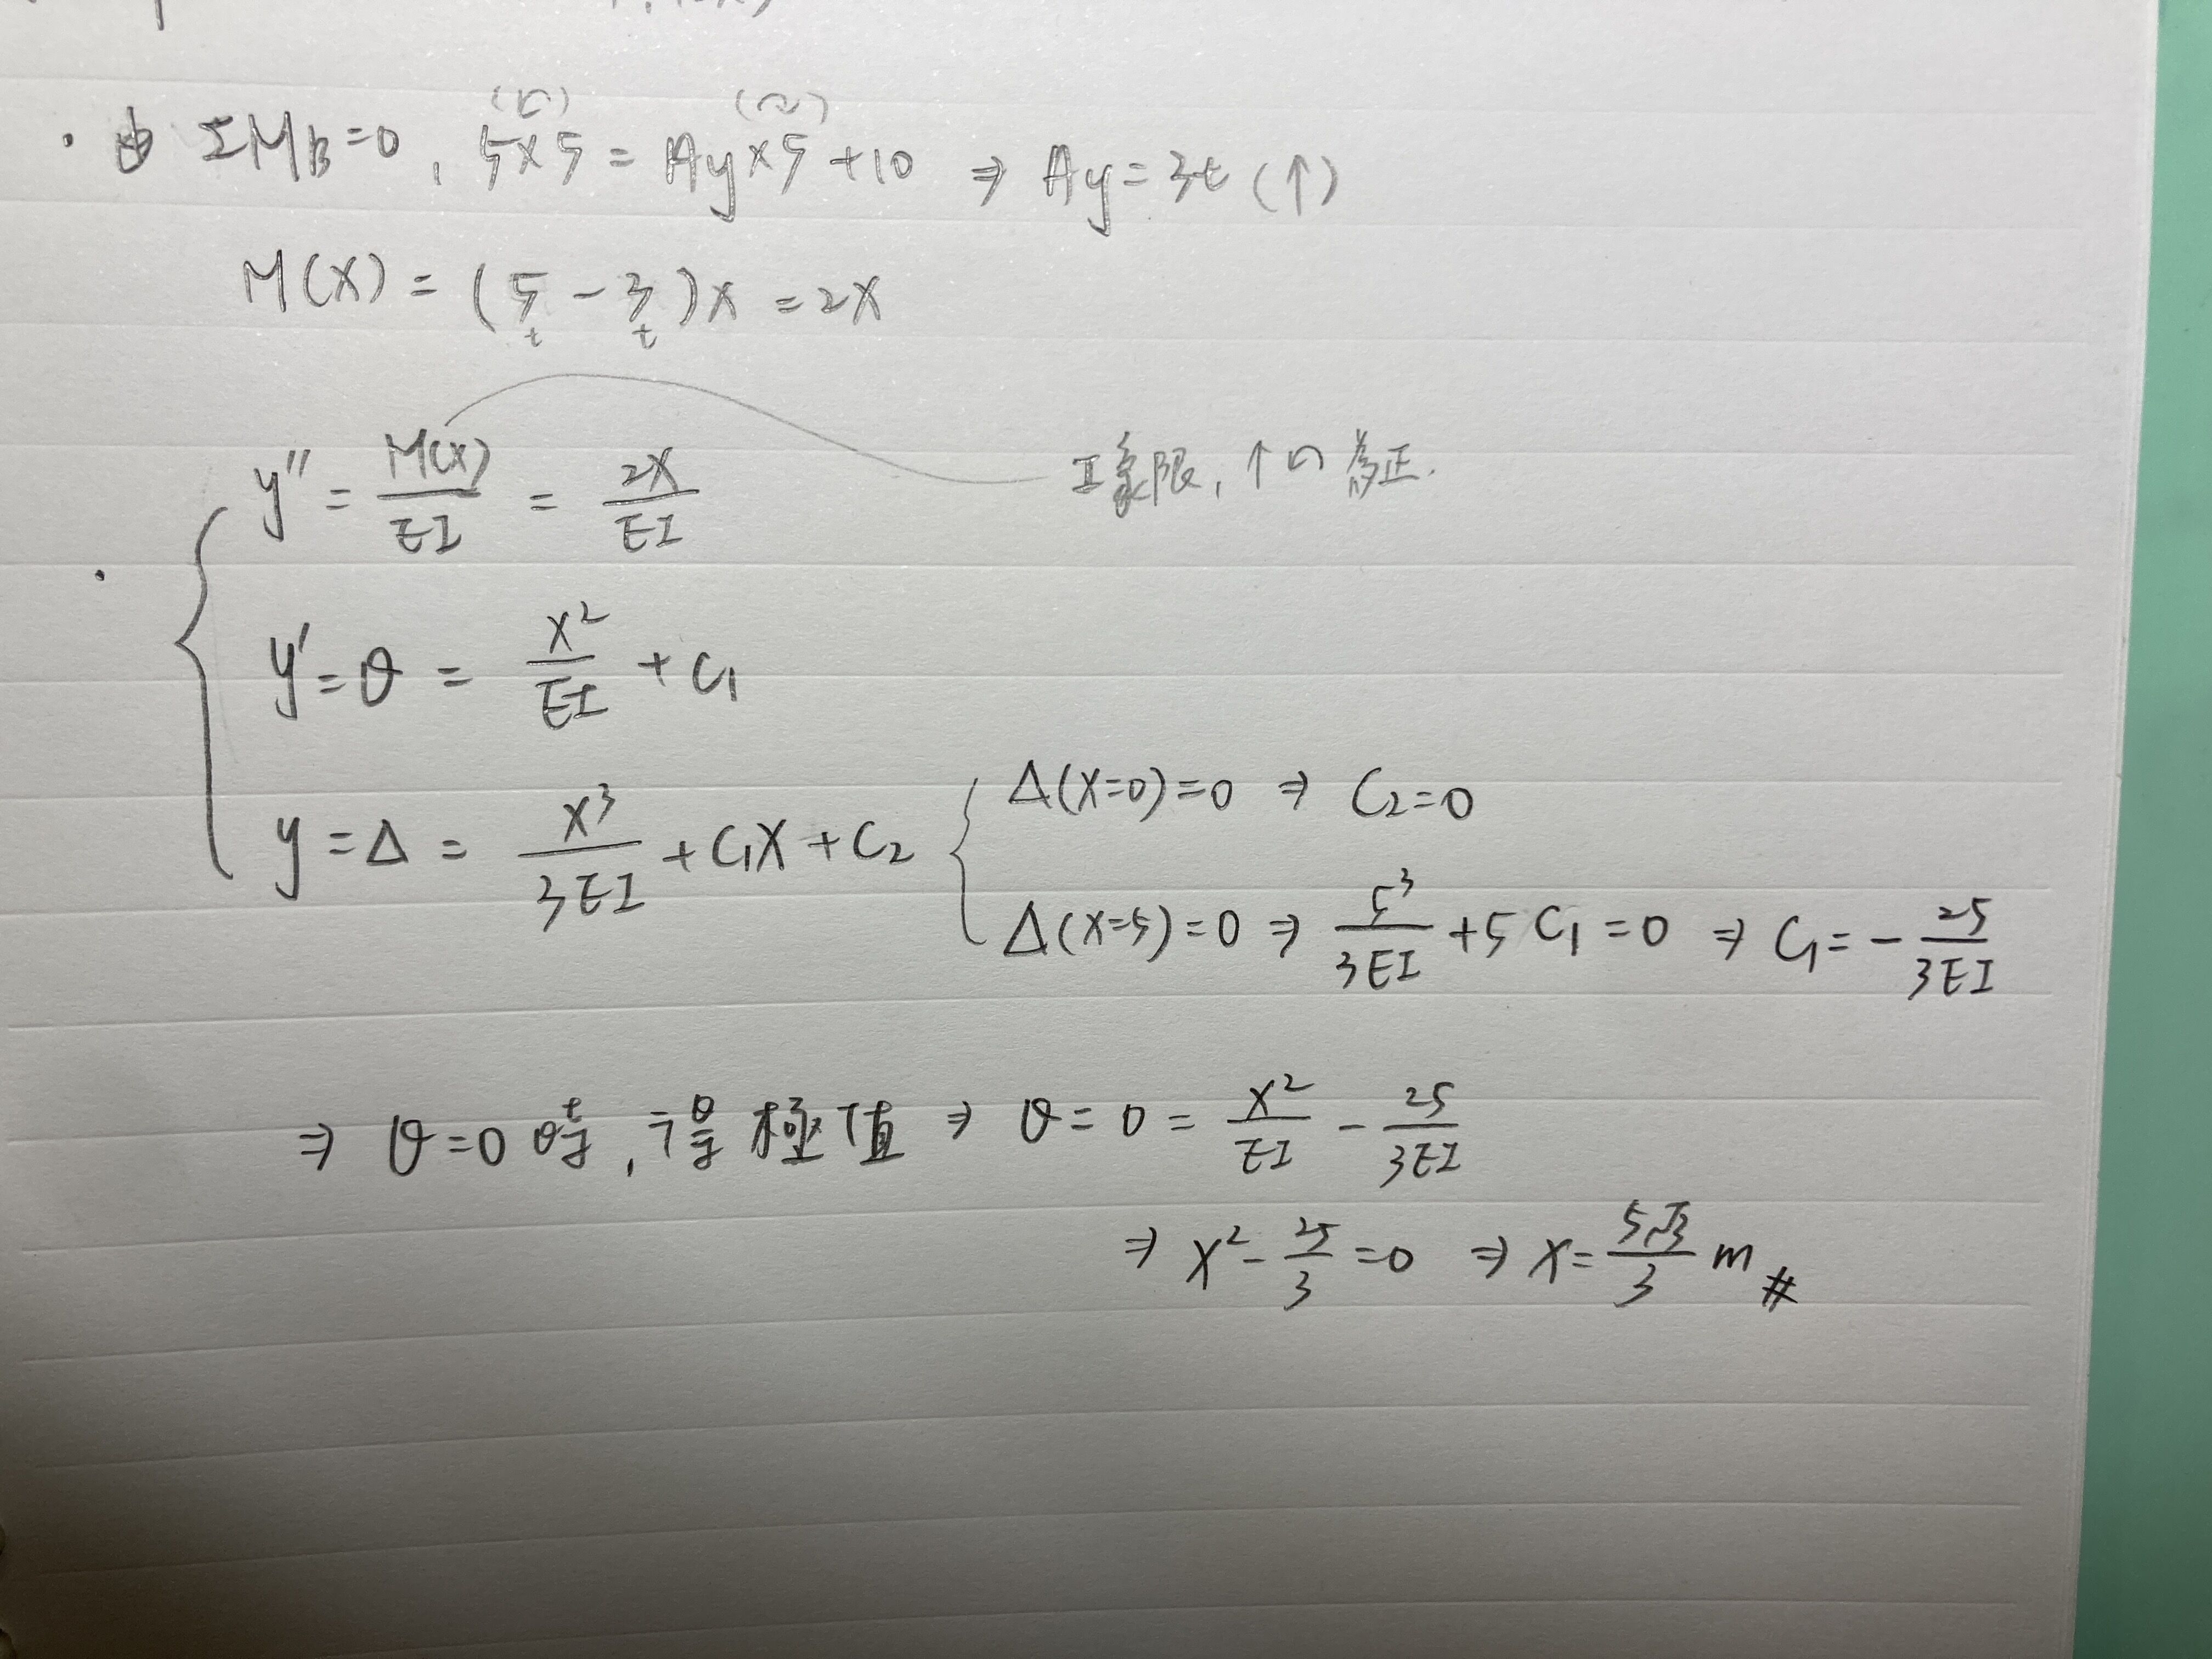 · 由 ΣMB=0, 5×5 = Ay×5+10 ⇒ Ay=3t (↑)
M(x) = (5t - 3t)x = 2x
y'' = M(x)/EI = 2x/EI
I象限, ↑↶為正.
y' = θ = x²/EI + C₁
y = Δ = x³/3EI + C₁x + C₂
Δ(x=0)=0 ⇒ C₂=0
Δ(x=5)=0 ⇒ 5³/3EI + 5C₁ = 0 ⇒ C₁ = - 25/3EI
⇒ θ=0時, 得極值 ⇒ θ = 0 = x²/EI - 25/3EI
⇒ x² - 25/3 = 0 ⇒ x = 5√3/3 m #